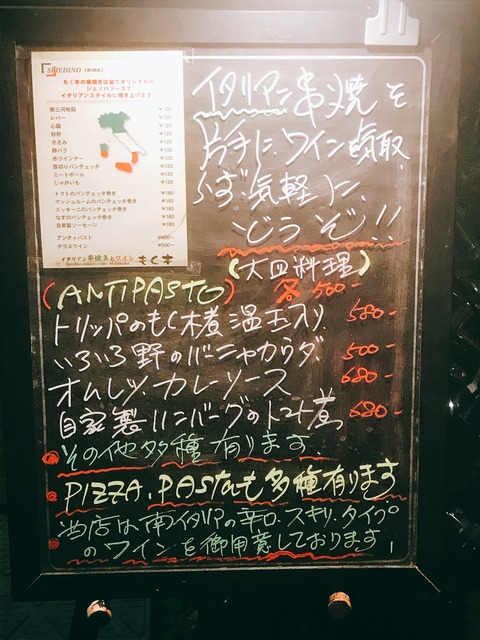 SPIEDINO 【串焼き】
もく木の串焼きは全てオリジナルの
ジェノバソースで
イタリアンスタイルに焼き上げます
奥三河地鶏 ¥120
レバー ¥120
心臓 ¥120
砂肝 ¥120
ささみ ¥120
豚バラ ¥120
赤ウインナー ¥120
厚切りパンチェッタ ¥120
ミートボール ¥120
じゃがいも ¥120
トマトのパンチェッタ巻き ¥180
マッシュルームのパンチェッタ巻き ¥180
ズッキーニのパンチェッタ巻き ¥180
なすのパンチェッタ巻き ¥180
自家製ソーセージ ¥180
アンティパスト ¥400〜
グラスワイン ¥500〜
イタリアン串焼き&ワイン もく木
イタリアン串焼を
片手に、ワイン
らず気軽に、
どうぞ!!
(大皿料理)
(ANTIPASTO) 各500-
トリッパのもく木煮 温玉入り 580-
いろいろ野のバーニャカウダ 500-
オムレツ、カレーソース 680-
自家製ハンバーグのトマト煮 680-
その他多種有ります。
PIZZA、PAStaも多種有ります
当店は南イタリアの辛口、スキリ、タイプ
のワインを御用意しております!